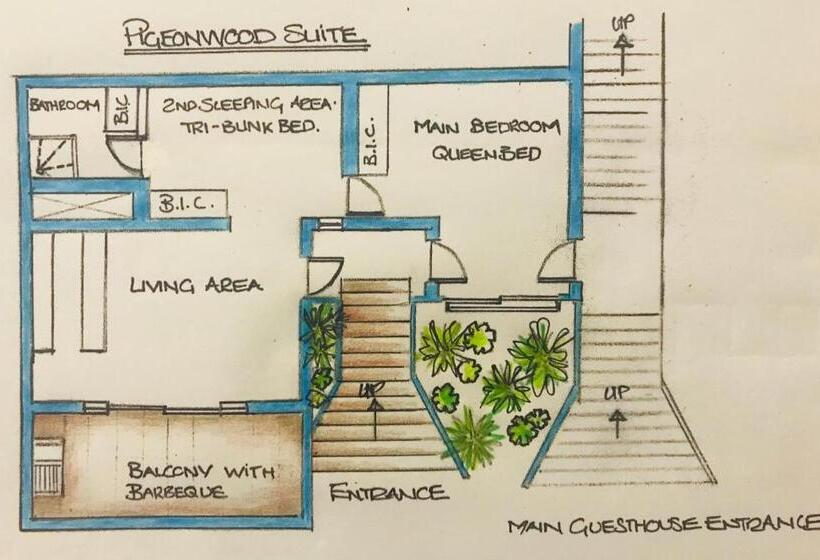 PIGEONWOOD SUITE
UP
BATHROOM
B.I.C.
2ND SLEEPING AREA.
TRI-BUNK BED.
B.I.C.
MAIN BEDROOM
QUEEN BED
B.I.C.
LIVING AREA
UP
UP
BALCONY WITH
BARBEQUE
ENTRANCE
MAIN GUESTHOUSE ENTRANCE